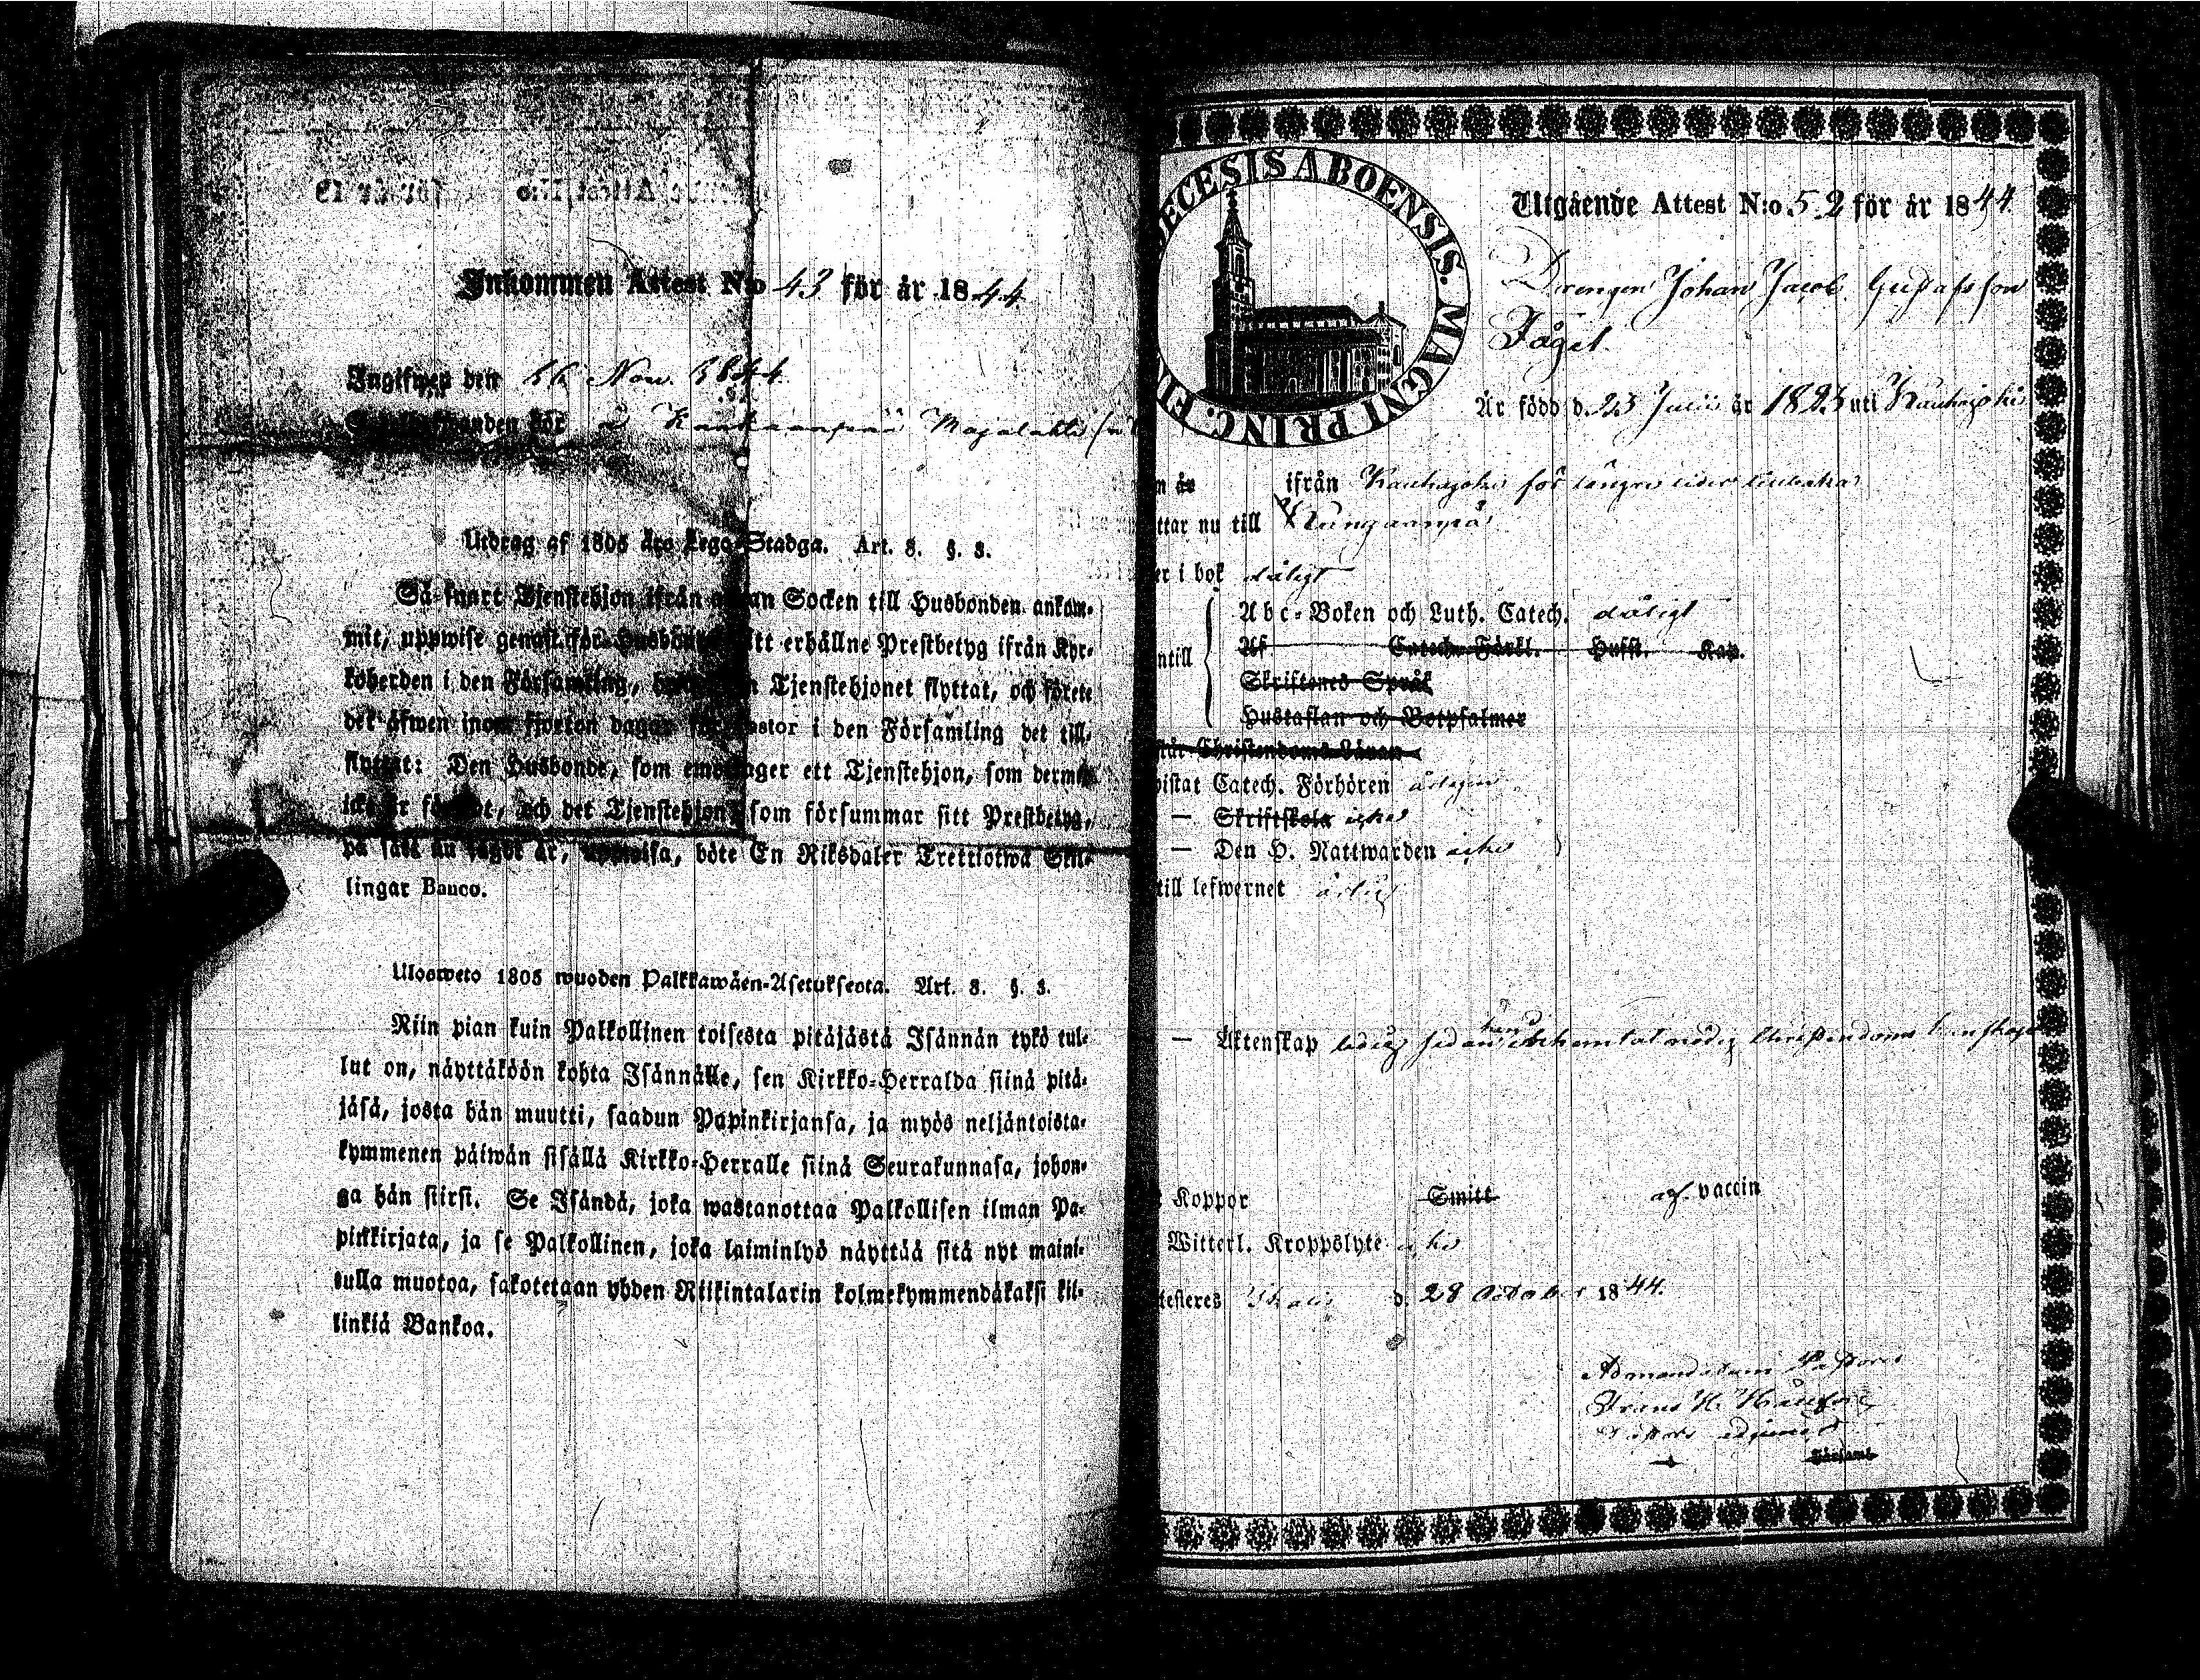 Inkommen Attest N:o 43 för år 1844
Ingifwen den 16 Nov. 1844
Utdrag af 1805 års Lego-Stadga. Art. 8. §. 3.
Så snart Tjenstehjon ifrån annan Socken till Husbonden ankom-
mit, uppwise genast för Husbonden sitt erhållne Prestbetyg ifrån Kyr-
koherden i den Församling, Tjenstehjonet flyttat, och förete
det äfwen inom fjorton dagar för Pastor i den Församling det till-
flyttat: Den Husbonde, som emottager ett Tjenstehjon, som dermed
icke är försedt, och det Tjenstehjon, som försummar sitt Prestbetyg,
på sätt nu sagdt är, uppwisa, böte En Riksdaler Trettiotwå Skil-
lingar Banco.
Ulosweto 1805 wuoden Palkkawäen-Asetuksesta. Art. 8. §. 3.
Niin pian kuin Palkollinen toisesta pitäjästä Isännän tykö tul-
lut on, näyttäköön kohta Isännälle, sen Kirkko-Herralda siinä pitä-
jäsä, josta hän muutti, saadun Papinkirjansa, ja myös neljäntoista-
kymmenen päiwän sisällä Kirkko-Herralle siinä Seurakunnasa, johon-
ga hän siirsi. Se Isändä, joka wastanottaa Palkollisen ilman Pa-
pinkirjata, ja se Palkollinen, joka laiminlyö näyttää sitä nyt maini-
tulla muotoa, sakotetaan yhden Riikintalarin kolmekymmendäkaksi kil-
linkiä Bankoa.
ECESIS ABOENSIS. MAGNI PRINC. FIN
Utgående Attest N:o 52 för år 1844
Drengen Johan Jacob Gustafsson
Fågel.
Är född d. 23 Julii år 1823 uti Kauhajoki
ifrån Kauhajoki för längre tider tillbaka
ttar nu till
er i bok dåligt
Abc-Boken och Luth. Catech. dåligt
ntill Af Catech. Förkl. Husst. Kap.
Skriftenes Språk
Hustaflan och Botpsalmer
står Christendoms Läran
bistat Catech. Förhören
— Skriftskola icke
— Den H. Nattwarden icke
till lefwernet ärlig
— Äktenskap ledig, sedan han nödig Christendoms kunskap
Koppor Smitt af vaccin
Witterl. Kroppslyte icke
testeres d. 28 October 1844.
Admandatum Pastoris
Frans H.
Församl.